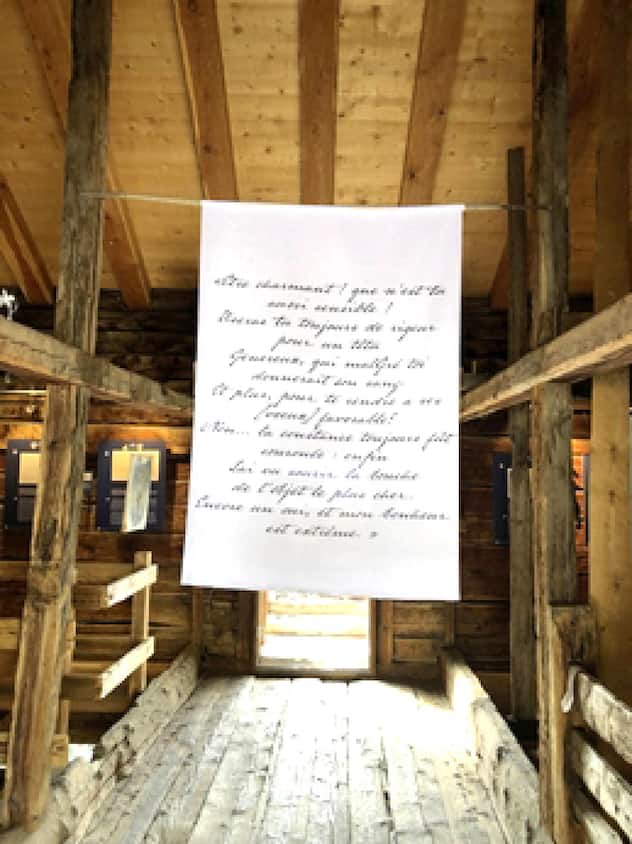 Être charmant ! que n'est tu
moins sensible !
tu toujours de rigueur
pour un
Généreux, qui malgré toi
donnerait son sang
Et plus, pour te rendre a ses
[voeux] favorable ?
Non... ta constance toujours fut
couronté : enfin
J'ai vu sourir la bouche
de l'objet le plus cher..
Encore un sur, et mon bonheur
est extrême. »